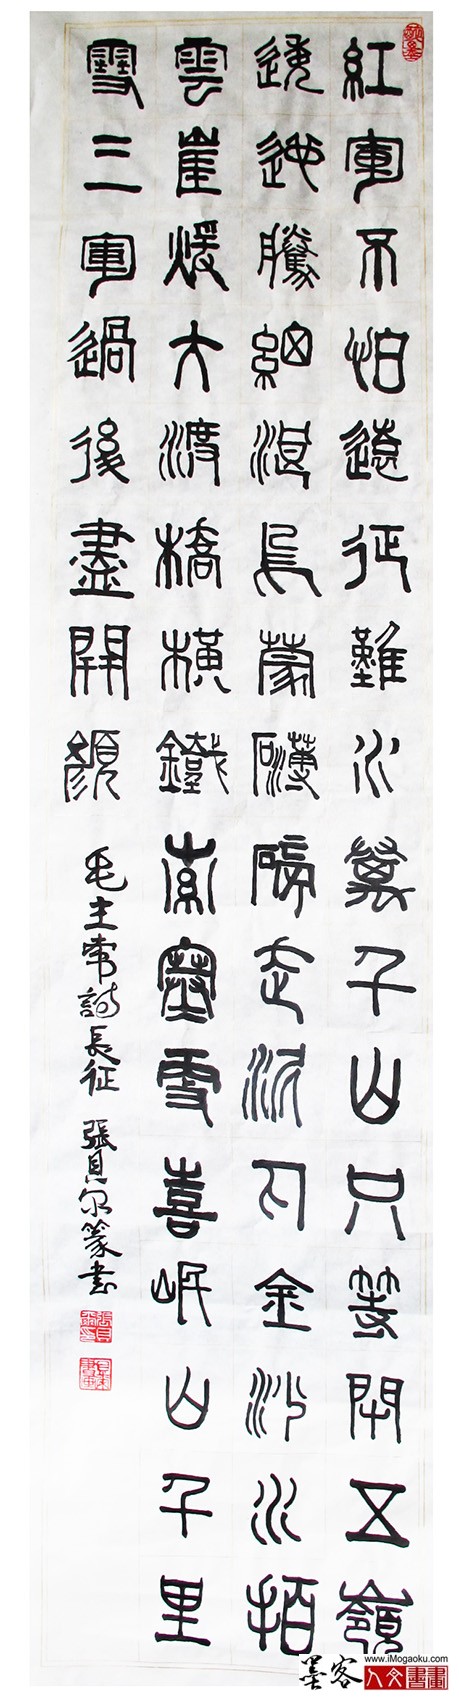 紅軍不怕遠征難水萬千山只等閑五嶺
逶迤騰細浪烏蒙礴磅走泥丸金沙水拍
雲崖煖大渡橋橫鐵索寒更喜岷山千里
雪三軍過後盡開顏
毛主席詩長征 張貝尔篆書
www.iMogaoku.com
墨客 人文書畫